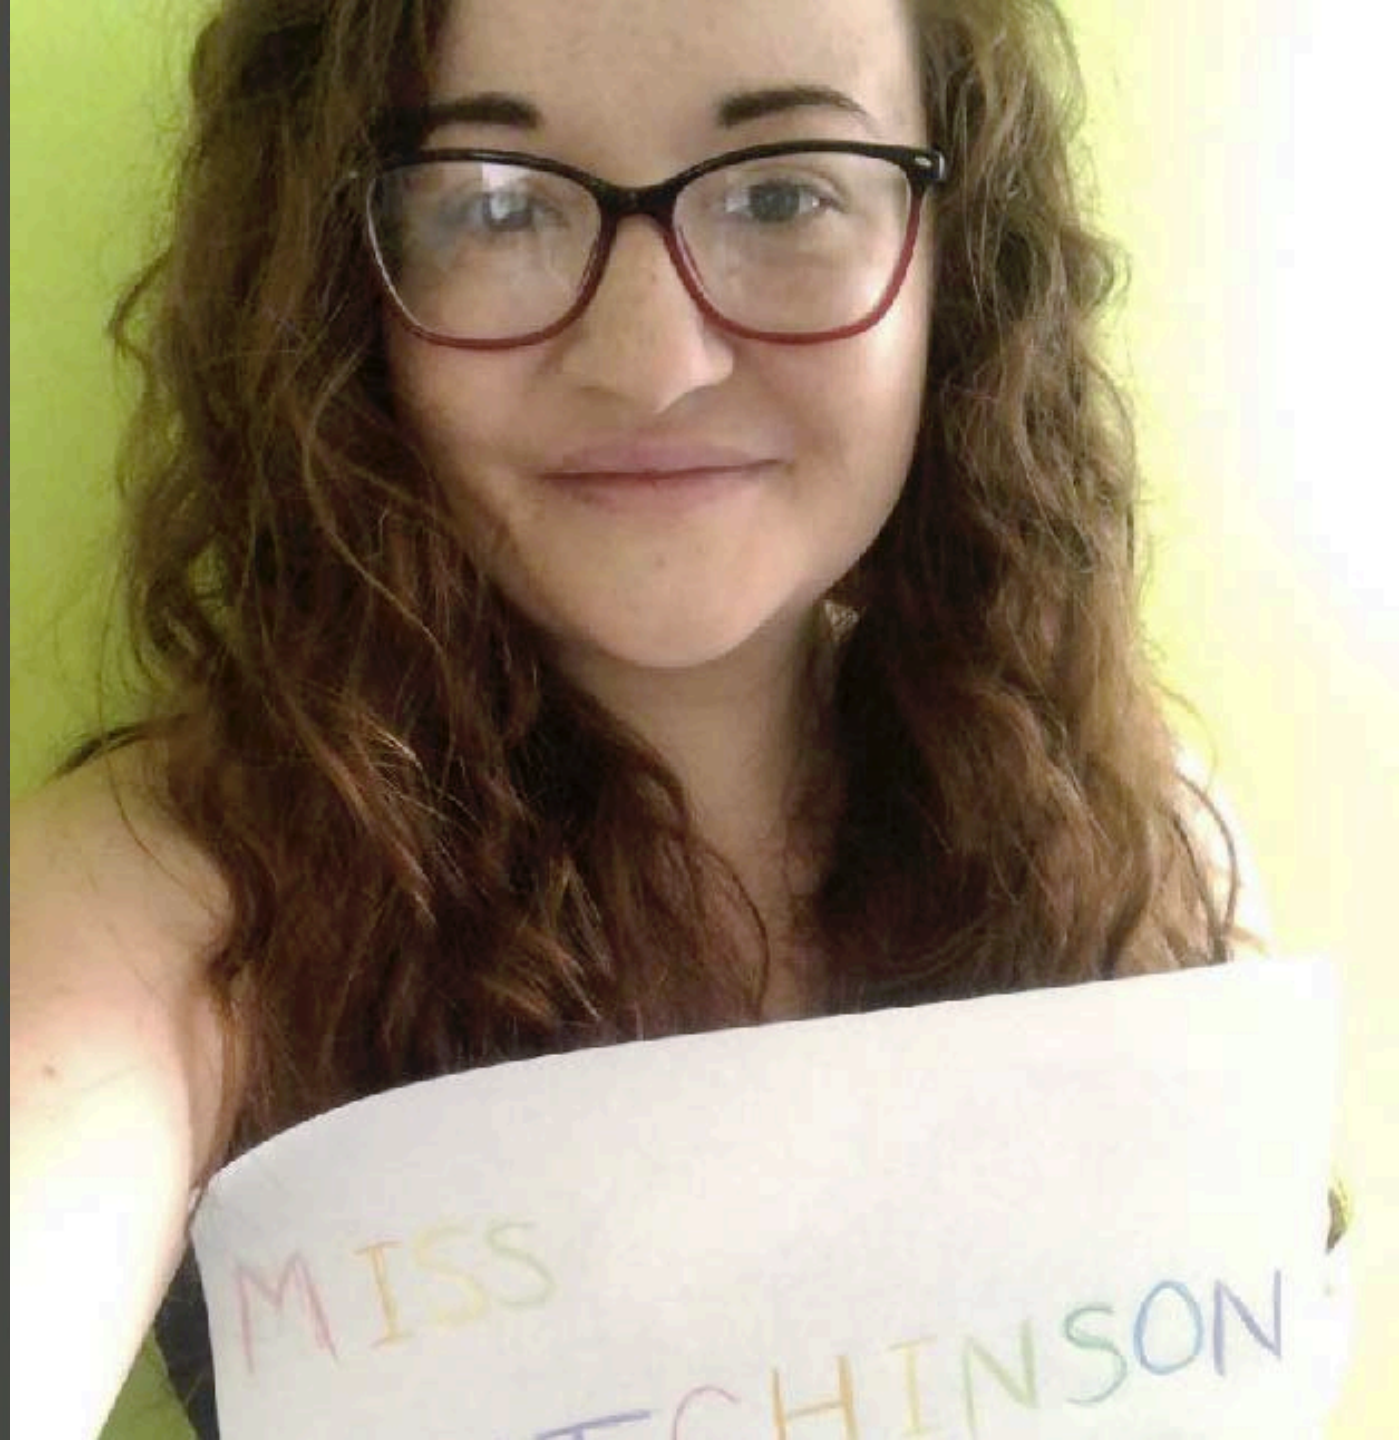 MISS
TCHINSON